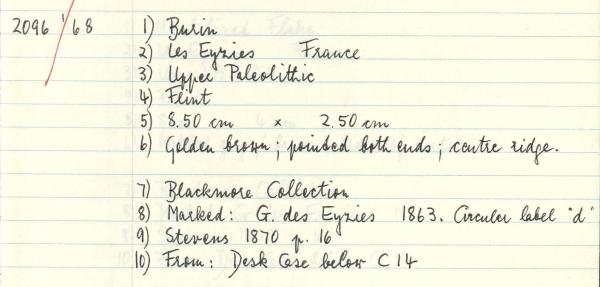 2096 '68 1) Burin
2) Les Eyzies France
3) Upper Paleolithic
4) Flint
5) 8.50 cm x 2.50 cm
6) Golden brown; pointed both ends; centre ridge.
7) Blackmore Collection
8) Marked: G. des Eyzies 1863. Circular label "d"
9) Stevens 1870 p. 16
10) From: Desk Case below C 14